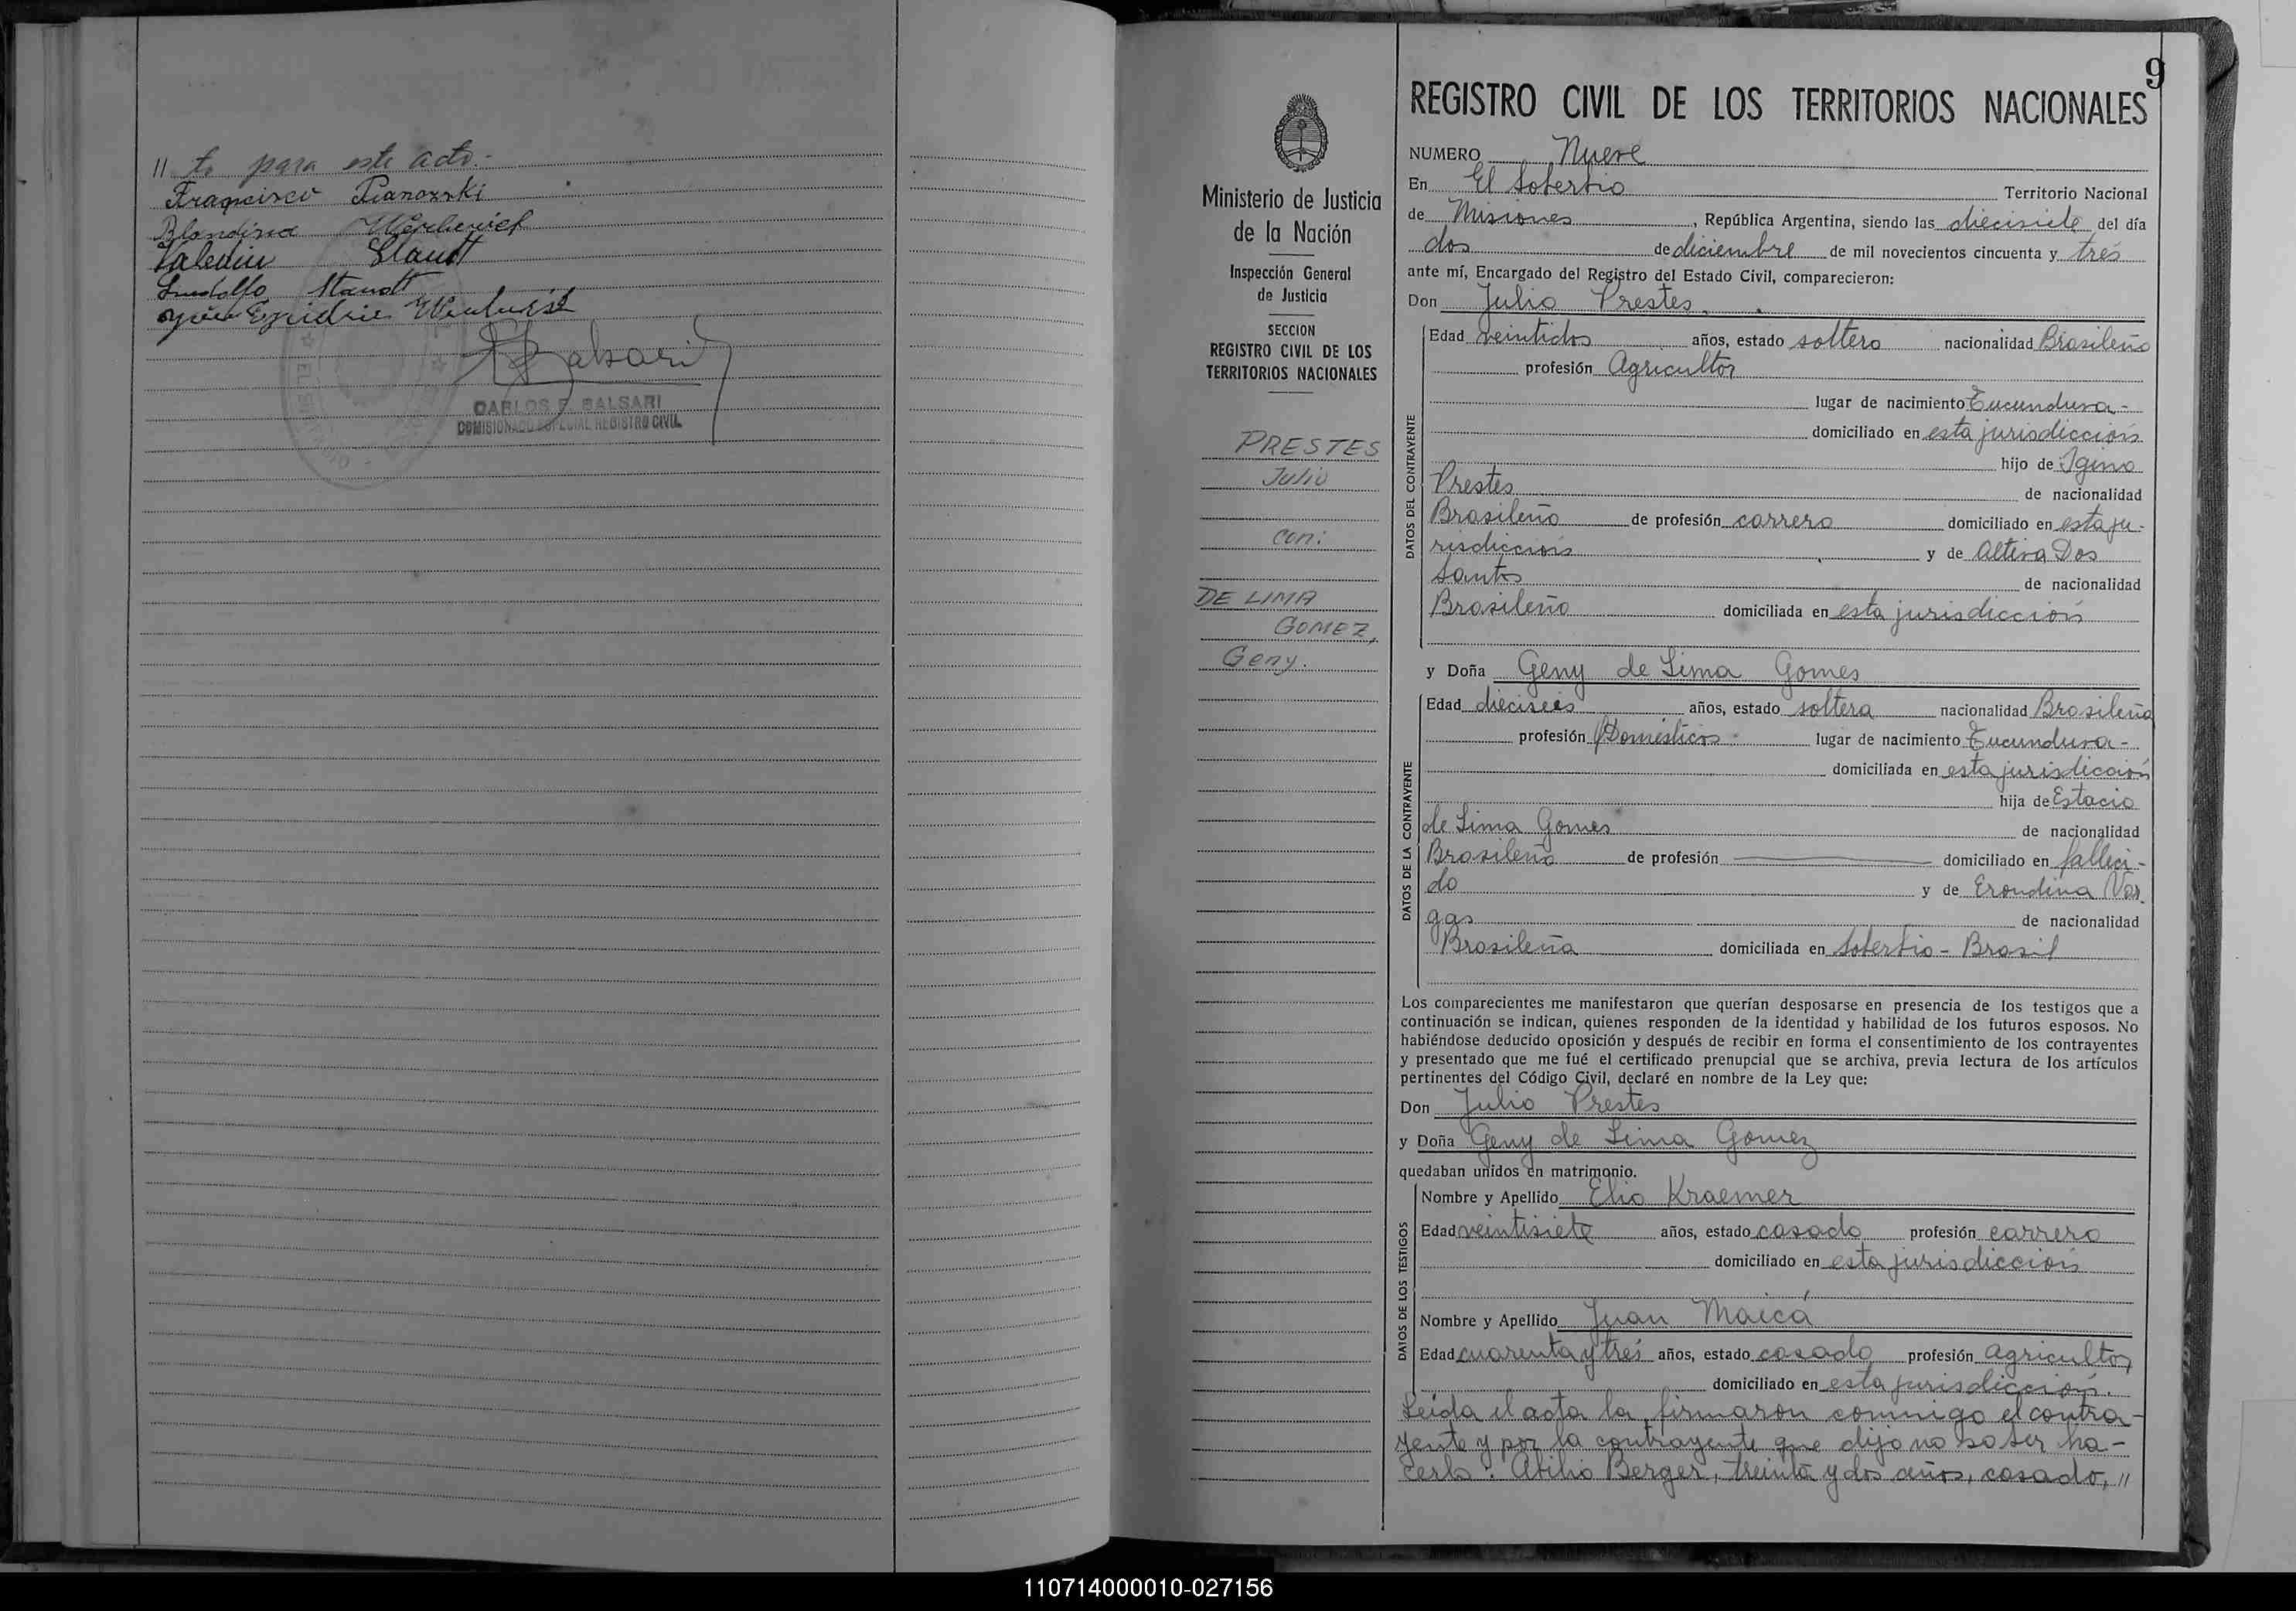 // to para este acto.-
Francisco Pianozski
Blondina
Valedin Staudt
Lindolfo Staudt
Balsari
CARLOS F. BALSARI
COMISIONADO ESPECIAL REGISTRO CIVIL
9
Ministerio de Justicia
de la Nación
Inspección General
de Justicia
SECCION
REGISTRO CIVIL DE LOS
TERRITORIOS NACIONALES
PRESTES
Julio
con:
DE LIMA
GOMEZ,
Geny.
REGISTRO CIVIL DE LOS TERRITORIOS NACIONALES
NUMERO Nueve
En El Soberbio Territorio Nacional
de Misiones, República Argentina, siendo las diecisiete del día
dos de diciembre de mil novecientos cincuenta y tres
ante mí, Encargado del Registro del Estado Civil, comparecieron:
Don Julio Prestes.
DATOS DEL CONTRAYENTE
Edad veintidos años, estado soltero nacionalidad Brasileño
profesión Agricultor
lugar de nacimiento Tucunduva-
domiciliado en esta jurisdicción
hijo de Igino
Prestes de nacionalidad
Brasileño de profesión carrero domiciliado en esta ju-
risdicción y de Altiva Dos
Santos de nacionalidad
Brasileña domiciliada en esta jurisdicción
y Doña Geny de Lima Gomes
DATOS DE LA CONTRAYENTE
Edad dieciseis años, estado soltera nacionalidad Brasileña
profesión Domésticos lugar de nacimiento Tucunduva-
domiciliada en esta jurisdicción
hija de Estacio
de Lima Gomes de nacionalidad
Brasileño de profesión domiciliado en falleci-
do y de Erondina Var
gas de nacionalidad
Brasileña domiciliada en Soberbio - Brasil
Los comparecientes me manifestaron que querían desposarse en presencia de los testigos que a
continuación se indican, quienes responden de la identidad y habilidad de los futuros esposos. No
habiéndose deducido oposición y después de recibir en forma el consentimiento de los contrayentes
y presentado que me fué el certificado prenupcial que se archiva, previa lectura de los artículos
pertinentes del Código Civil, declaré en nombre de la Ley que:
Don Julio Prestes
y Doña Geny de Lima Gomez
quedaban unidos en matrimonio.
DATOS DE LOS TESTIGOS
Nombre y Apellido Elio Kraemer
Edad veintisiete años, estado casado profesión carrero
domiciliado en esta jurisdicción
Nombre y Apellido Juan Maicá
Edad cuarenta y tres años, estado casado profesión agricultor
domiciliado en esta jurisdicción.
Leida el acta la firmaron conmigo el contra-
yente y por la contrayente que dijo no saber ha-
cerlo: Atilio Berger, treinta y dos años, casado, //
110714000010-027156